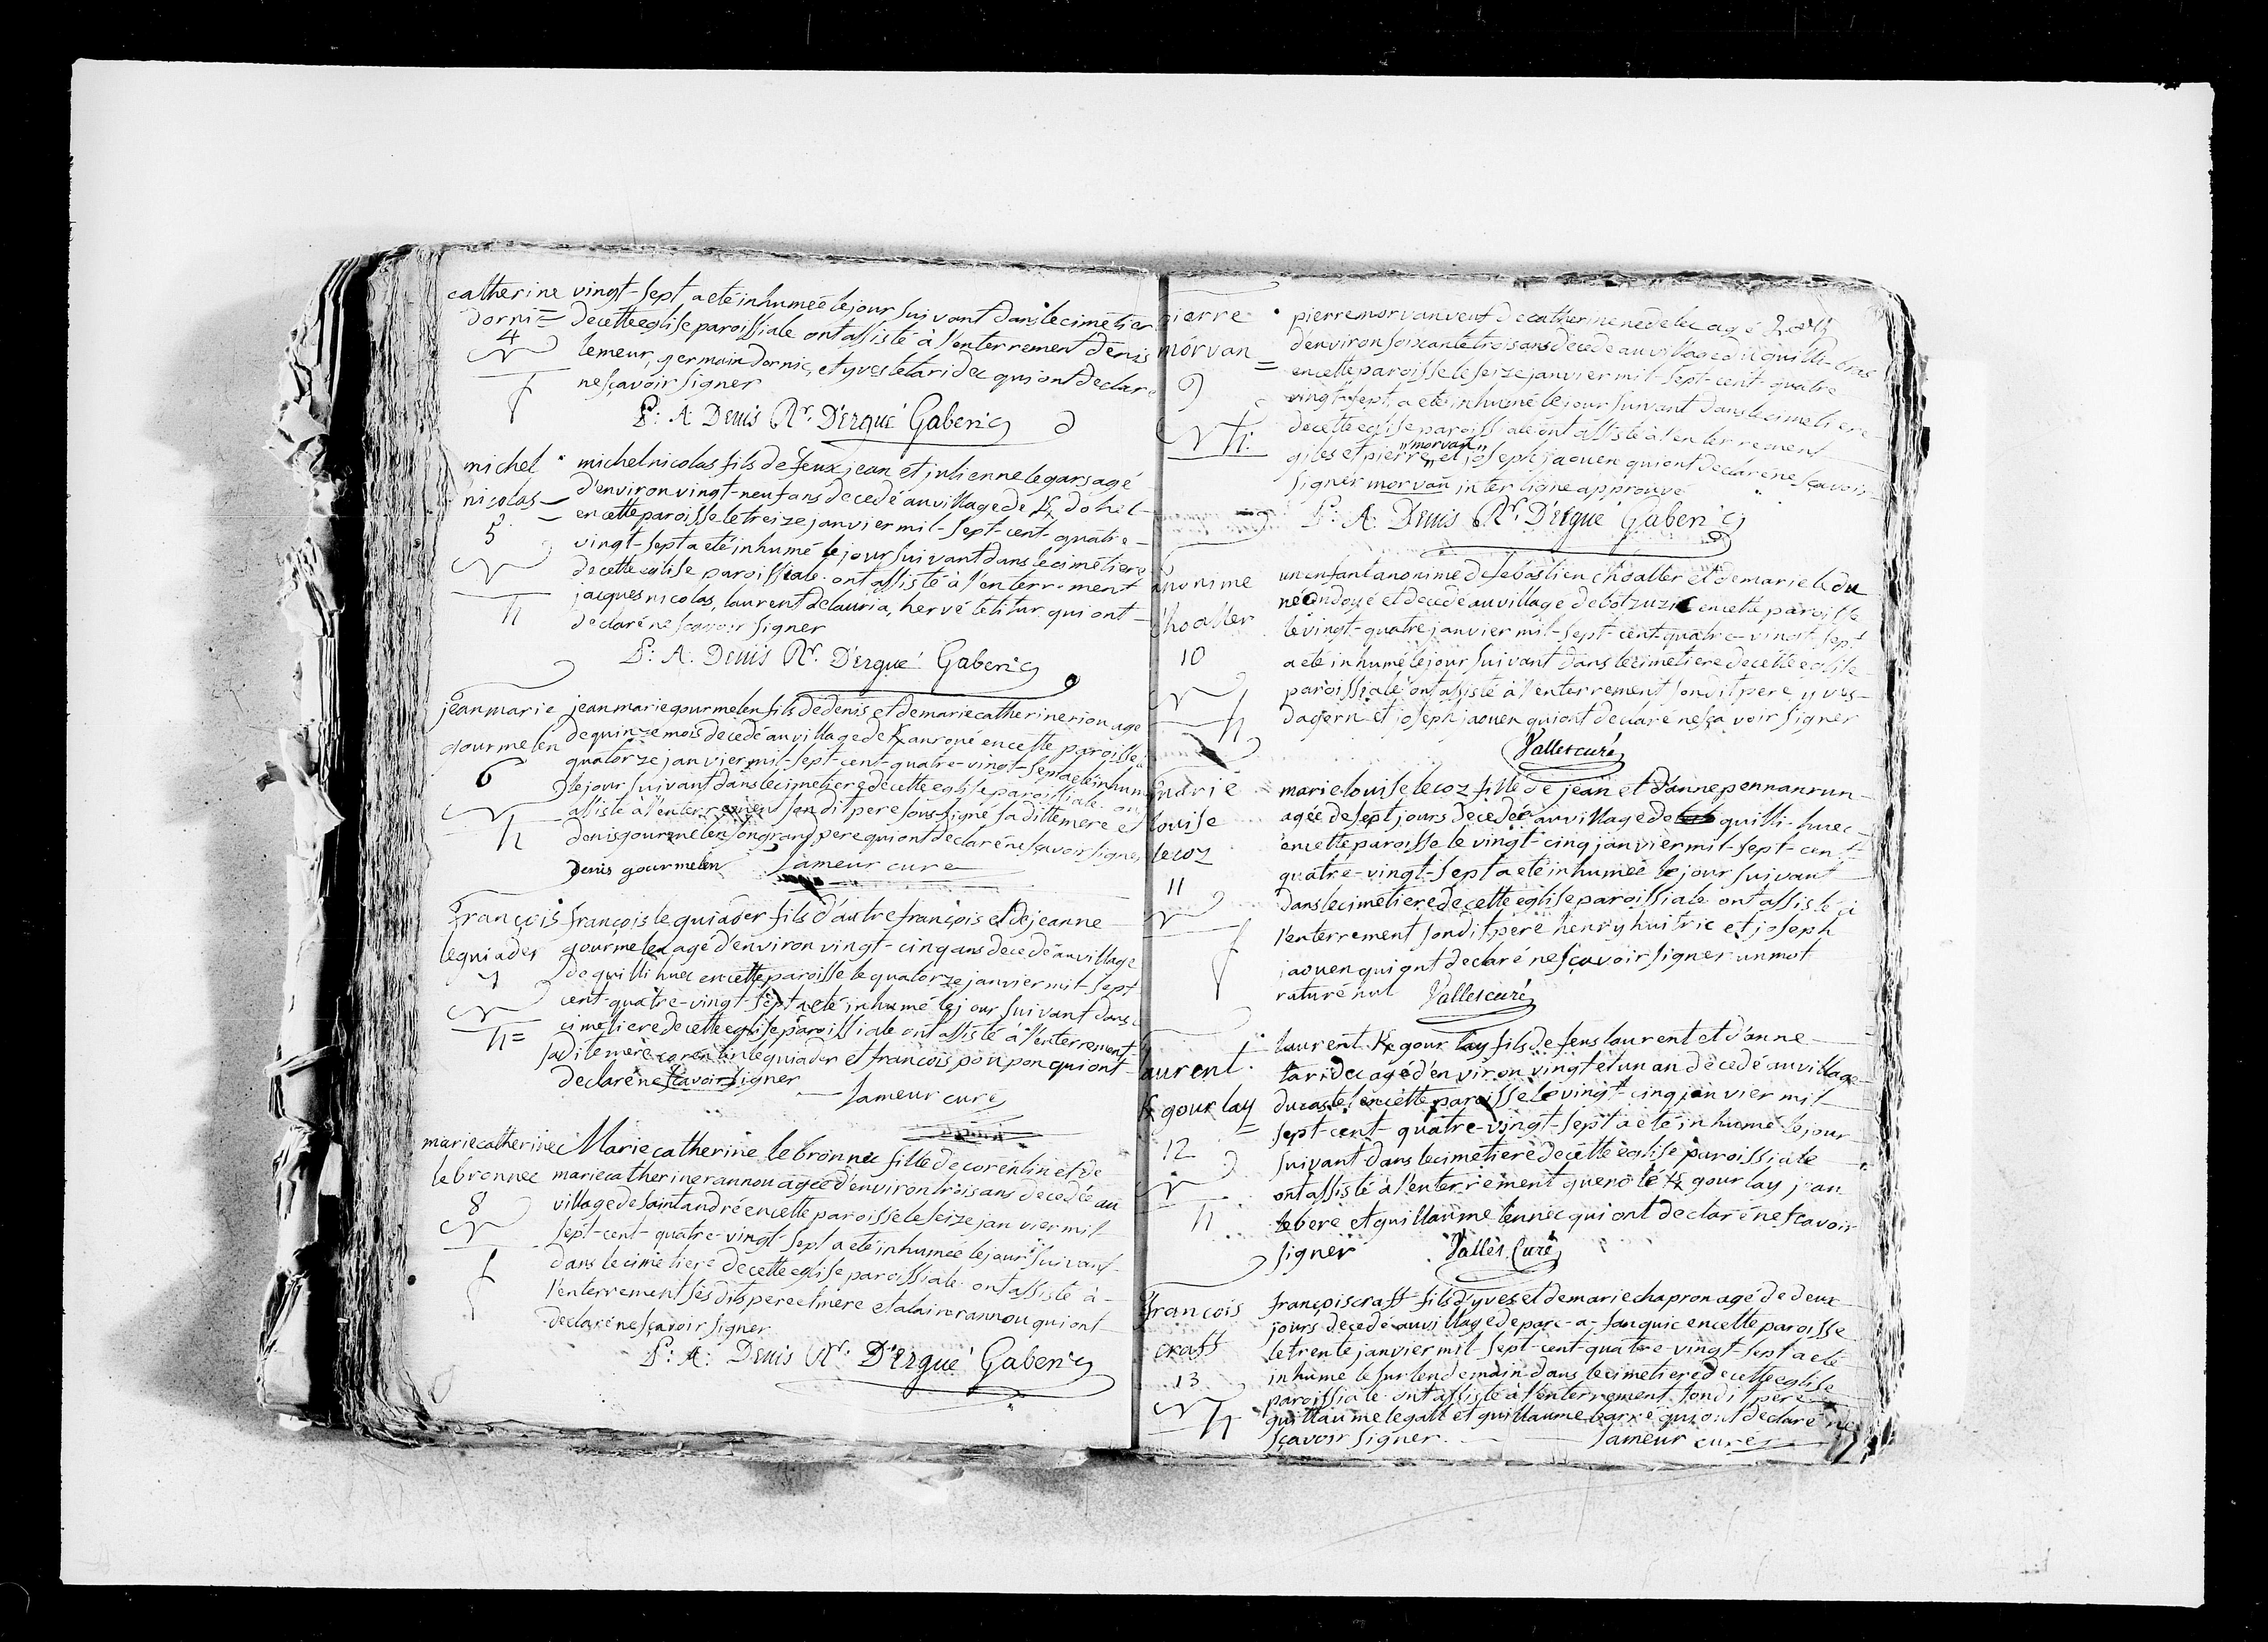 catherine vingt-sept a eté inhumeé le jour suivant dans le cimetier
dornic = de cette eglise paroissiale ont assisté à l'enterrement denis
4 lemeur, germain dornic, et yves letaridec qui ont declaré
ne sçavoir signer
P: A: Denis Rr. D'ergué Gaberic
michel michel nicolas fils de feux jean et julienne legars agé
nicolas d'environ vingt-neuf ans decedé au village de K dohel
en cette paroisse le treize janvier mil-sept-cent-quatre-
5 vingt-sept a eté inhumé le jour suivant dans le cimetiere
de cette eglise paroissiale ont assisté à l'enterrement
jacques nicolas, laurent delauria, hervé letitur qui ont
declaré ne sçavoir signer
P: A: Denis Rr. D'ergué Gaberic
jean marie jean marie gourmelen fils de denis et de marie catherine rion agé
gourmelen de quinze mois decedé au village de K anroué en cette paroisse
quatorze janvier mil-sept-cent-quatre-vingt-sept a eté inhum
6 le jour suivant dans le cimetiere de cette eglise paroissiale ont
assisté à l'enterrement son dit pere sous-signé saditte mere et
denis gourmelen son grand pere qui ont declaré ne sçavoir signer
Denis gourmelen Lameur curé
françois françois le quiader fils d'autre françois et de jeanne
lequiader gourmelen agé d'environ vingt-cinq ans decedé au village
7 de quilli huec en cette paroisse le quatorze janvier mil-sept
cent-quatre-vingt-sept a eté inhumé le jour suivant dans
cimetiere de cette eglise paroissiale ont assisté à l'enterrement
sadite mere corentin lequiader et francois ponpon qui ont
declaré ne sçavoir signer
Lameur curé
marie catherine Marie catherine le bronnec fille de corentin et de
le bronnec marie catherine rannou ageé d'environ trois ans decedeé au
8 village de saint andré en cette paroisse le seize janvier mil
sept-cent-quatre-vingt-sept a eté inhumeé le jour suivant
dans le cimetiere de cette eglise paroissiale ont assisté à
l'enterrement ses dits pere et mere et alain rannou qui ont
declaré ne sçavoir signer
P: A: Denis Rr. D'ergué Gaberic
pierre pierre morvan veuf de catherine nedelec agé
morvan = d'environ soixante trois ans decedé au village du quilli-bras
en cette paroisse le seize janvier mil-sept-cent-quatre
9 vingt-sept, a eté inhumé le jour suivant dans le cimetiere
de cette eglise paroissiale ont assisté à l'enterrement
"morvan"
giles et pierre et joseph jaouen qui ont declaré ne sçavoir
signer morvan interligne approuvé
P: A: Denis Rr. D'ergué Gaberic
anonime un enfant anonime de sebastien choatter et de marie le du
né ondoyé et decedé au village de botzuzic en cette paroisse
choatter le vingt-quatre janvier mil-sept-cent-quatre-vingt sept
10 a eté inhumé le jour suivant dans le cimetiere de cette eglise
paroissiale ont assisté à l'enterrement son dit pere yves
dagorn et joseph jaouen qui ont declaré ne sça voir signer
Vallet curé
marie marie louise le coz fille de jean et d'anne pennanrun
louise agée de sept jours decedeé au village de quilli-huec
lecoz en cette paroisse le vingt-cinq janvier mil-sept-cent
quatre-vingt-sept a eté inhumeé le jour suivant
11 dans le cimetiere de cette eglise paroissiale ont assisté à
l'enterrement son dit pere henry huitric et joseph
jaouen qui ont declaré ne sçavoir signer un mot
raturé nul Vallet curé
laurent K gourlay fils de feus laurent et d'anne
laurent taridec agé d'environ vingt et un an decedé au village
K gourlay du castel en cette paroisse le vingt-cinq janvier mil
sept-cent-quatre-vingt-sept a eté inhumé le jour
12 suivant dans le cimetiere de cette eglise paroissiale
ont assisté à l'enterrement guenolé K gourlay jean
le bere et guillaume lennec qui ont declaré ne scavoir
signer Vallet Curé
françois françois craff fils d'yves et de marie chapron agé de deux
jours decedé au village de parc-a-fanquic en cette paroisse
craff le trente janvier mil-sept-cent-quatre-vingt-sept a eté
13 inhumé le surlendemain dans le cimetiere de cette eglise
paroissiale ont assisté à l'enterrement son dit pere
guillaume legall et guillaume barré qui ont declaré ne
sçavoir signer. Lameur curé